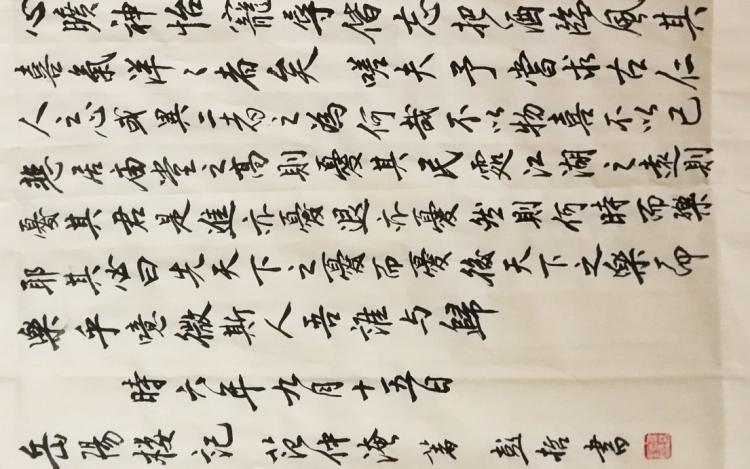 心曠神怡寵辱偕忘把酒臨風其
喜氣洋々者矣嗟夫予嘗求古仁
人之心或異二者之為何哉不以物喜不以己
悲居庙堂之高則憂其民處江湖之遠則
憂其君是進亦憂退亦憂然則何時而樂
耶其必曰先天下之憂而憂後天下之樂而
樂乎噫微斯人吾誰与歸
時六年九月十五日
岳陽楼记 范仲淹 著 彭哲書